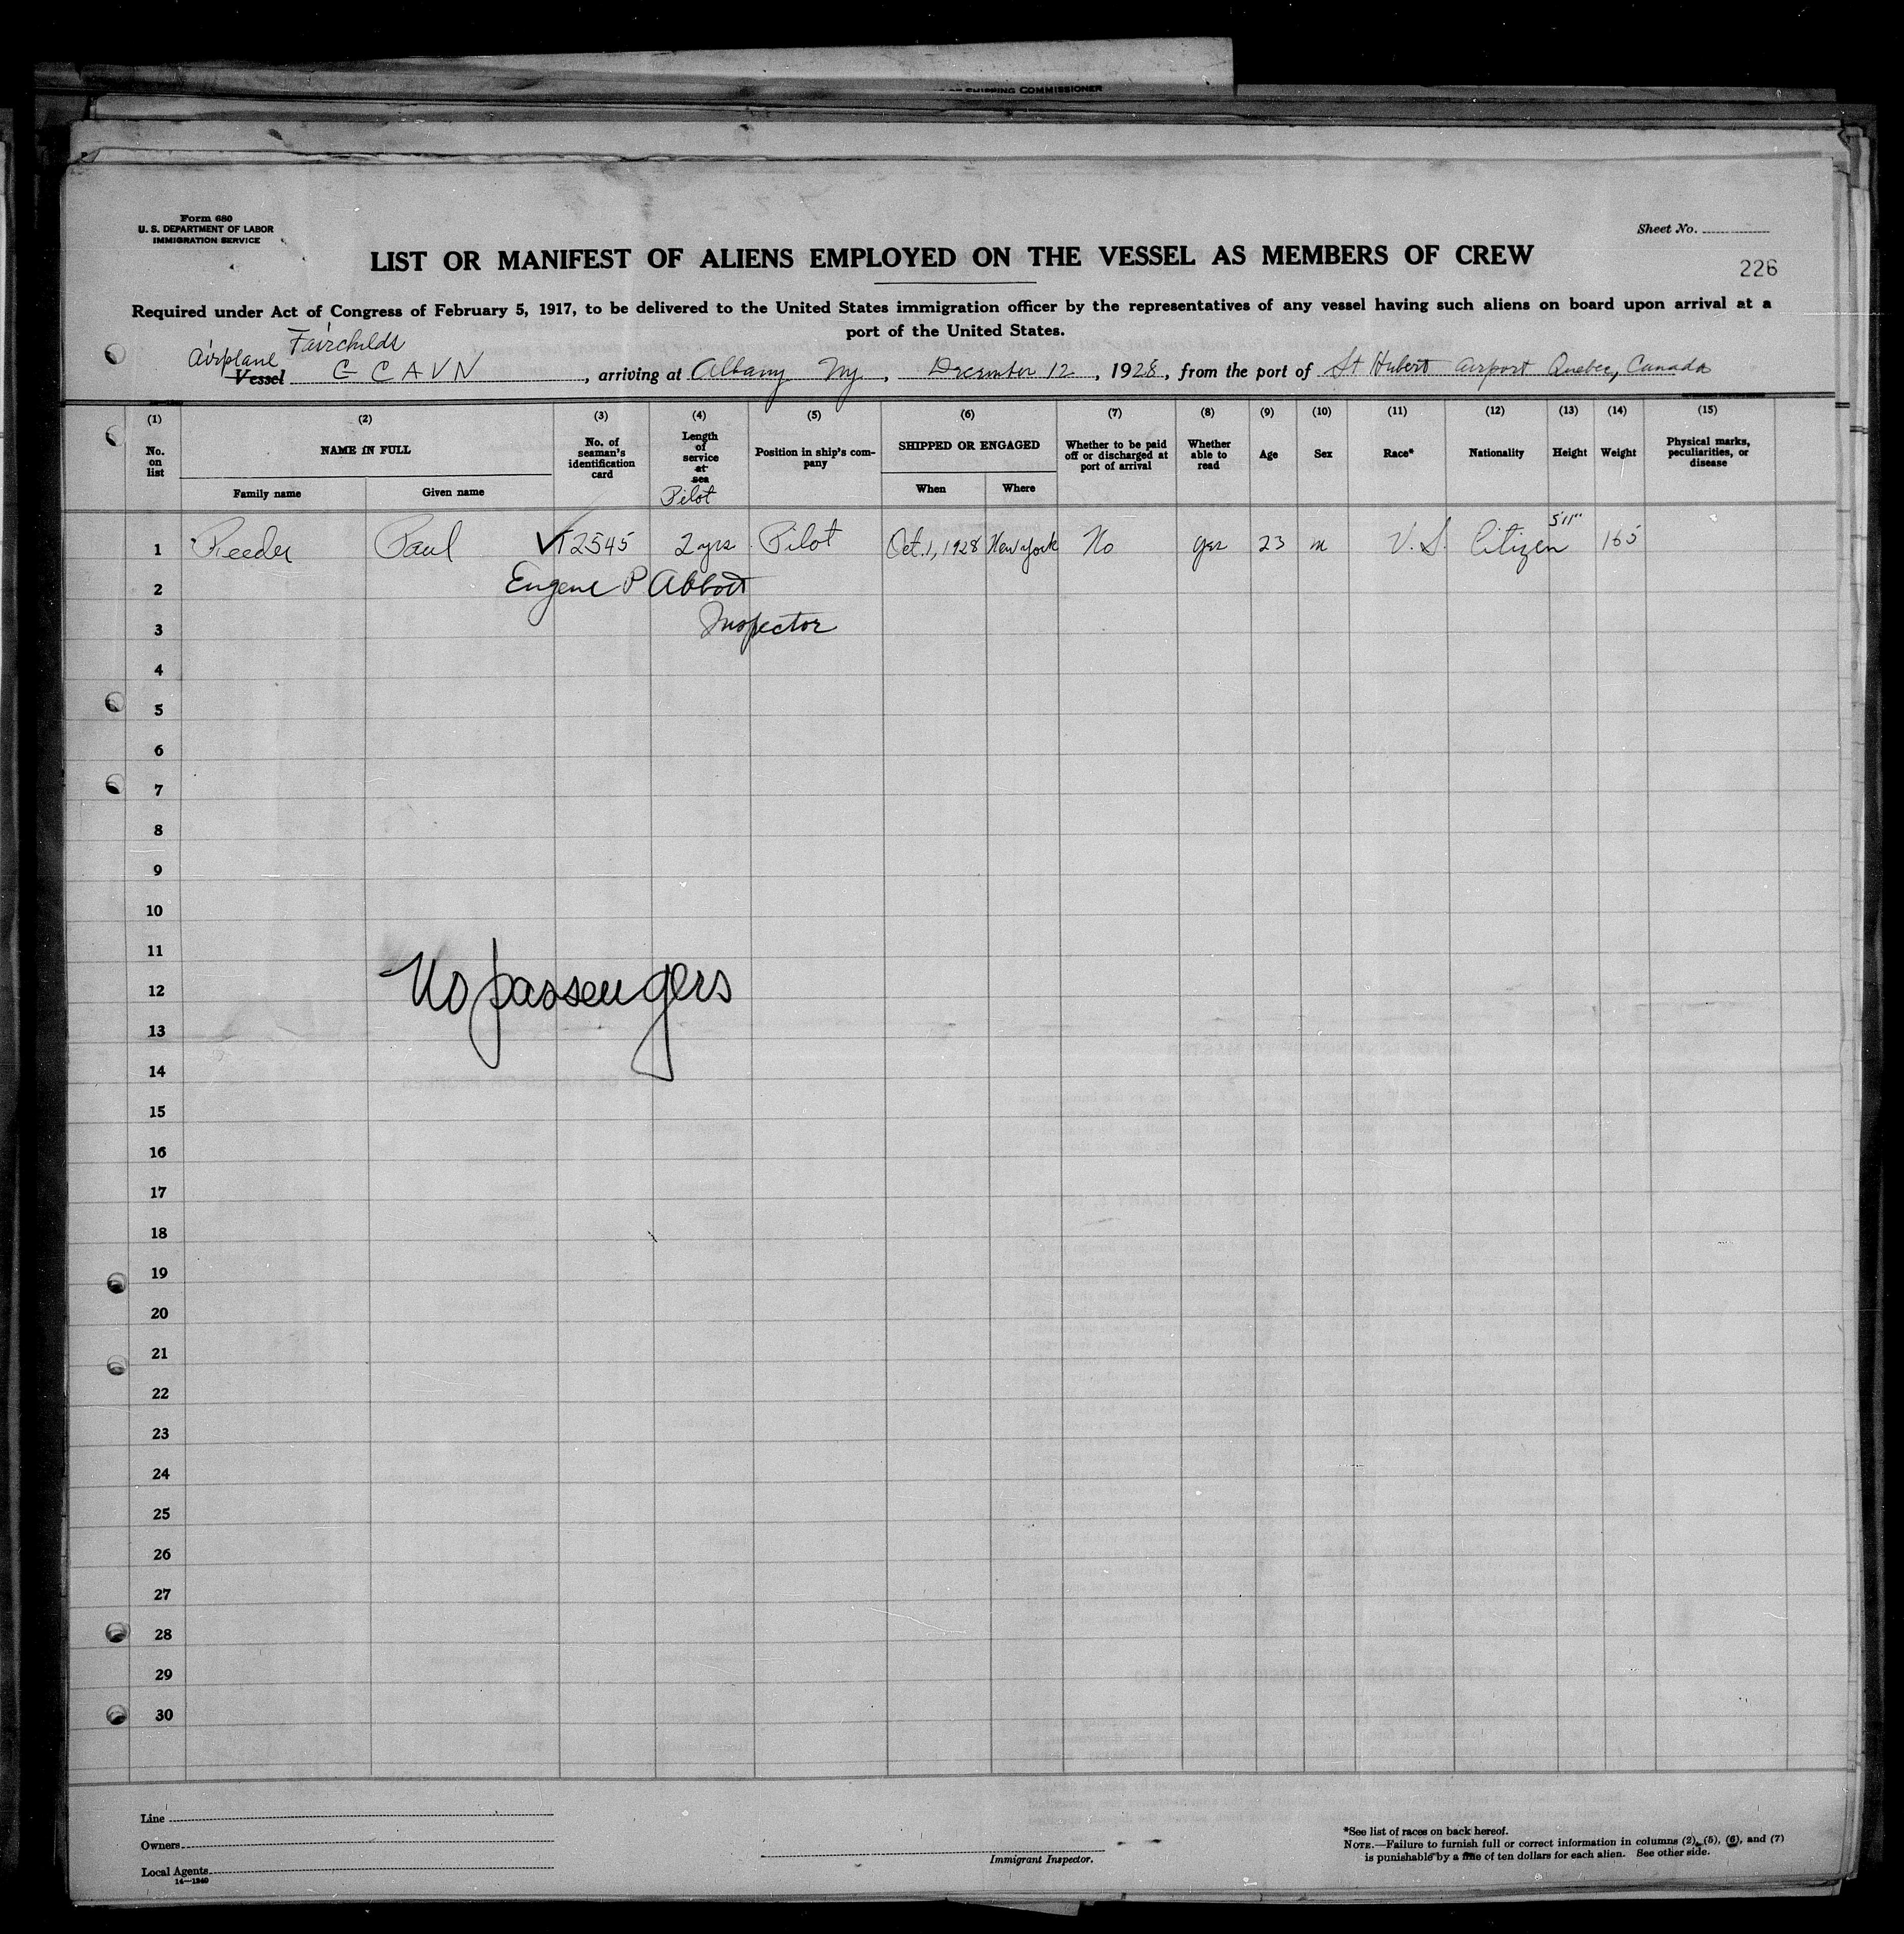 SHIPPING COMMISSIONER
Form 680
U. S. DEPARTMENT OF LABOR
IMMIGRATION SERVICE
Sheet No.
LIST OR MANIFEST OF ALIENS EMPLOYED ON THE VESSEL AS MEMBERS OF CREW
226
Required under Act of Congress of February 5, 1917, to be delivered to the United States immigration officer by the representatives of any vessel having such aliens on board upon arrival at a
port of the United States.
Airplane Fairchilds
Vessel G C A V N, arriving at Albany Ny, December 12, 1928, from the port of St Hubert airport Quebec, Canada
(1) (2) (3) (4) (5) (6) (7) (8) (9) (10) (11) (12) (13) (14) (15)
No. on list
NAME IN FULL
Family name
Given name
No. of seaman's identification card
Length of service at sea
Pilot
Position in ship's company
SHIPPED OR ENGAGED
When
Where
Whether to be paid off or discharged at port of arrival
Whether able to read
Age
Sex
Race*
Nationality
Height
Weight
Physical marks, peculiarities, or disease
1 Reeder Paul T2545 2 yrs Pilot Oct. 1, 1928 New York No yes 23 m U.S. Citizen 5'11" 165
2 Eugene P Abbott
3 Inspector
4
5
6
7
8
9
10
11
12 No passengers
13
14
15
16
17
18
19
20
21
22
23
24
25
26
27
28
29
30
Line
Owners
Local Agents
14—1240
Immigrant Inspector.
*See list of races on back hereof.
NOTE.—Failure to furnish full or correct information in columns (2), (5), (6), and (7)
is punishable by a fine of ten dollars for each alien. See other side.